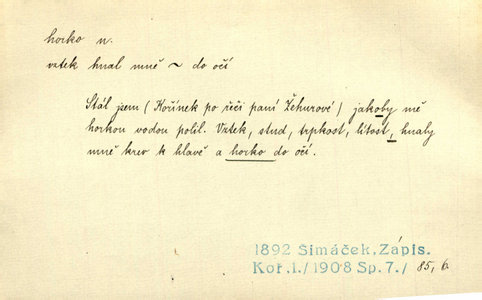 horko n.
vztek hnal mně ~ do očí
Stál jsem (Kořínek po řeči paní Žehurové) jakoby mě
horkou vodou polil. Vztek, stud, trpkost, lítost, hnaly
mně krev k hlavě a horko do očí.
1892 Šimáček, Zápis.
Koř.1./1908 Sp.7./ 85, 6